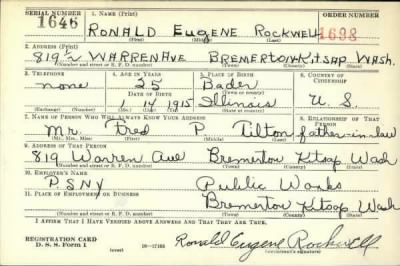 SERIAL NUMBER 1. NAME (Print) ORDER NUMBER
1646 RONALD EUGENE ROCKWELL 1698
(First) (Middle) (Last)
2. ADDRESS (Print)
819½ WARREN AVE BREMERTON KITSAP WASH.
(Number and street or R. F. D. number) (Town) (County) (State)
3. TELEPHONE 4. AGE IN YEARS 5. PLACE OF BIRTH 6. COUNTRY OF CITIZENSHIP
none 25 Bader
DATE OF BIRTH (Town or county)
1 14 1915 Illinois U. S.
(Exchange) (Number) (Mo.) (Day) (Yr.) (State or country)
7. NAME OF PERSON WHO WILL ALWAYS KNOW YOUR ADDRESS 8. RELATIONSHIP OF THAT PERSON
Mr. Fred P Tilton father-in-law
(Mr., Mrs., Miss) (First) (Middle) (Last)
9. ADDRESS OF THAT PERSON
819 Warren Ave Bremerton Kitsap Wash
(Number and street or R. F. D. number) (Town) (County) (State)
10. EMPLOYER'S NAME
PSNY Public Works
11. PLACE OF EMPLOYMENT OR BUSINESS
Bremerton Kitsap Wash
(Number and street or R. F. D. number) (Town) (County) (State)
I AFFIRM THAT I HAVE VERIFIED ABOVE ANSWERS AND THAT THEY ARE TRUE.
REGISTRATION CARD
D. S. S. Form 1 (over) Ronald Eugene Rockwell
(Registrant's signature)